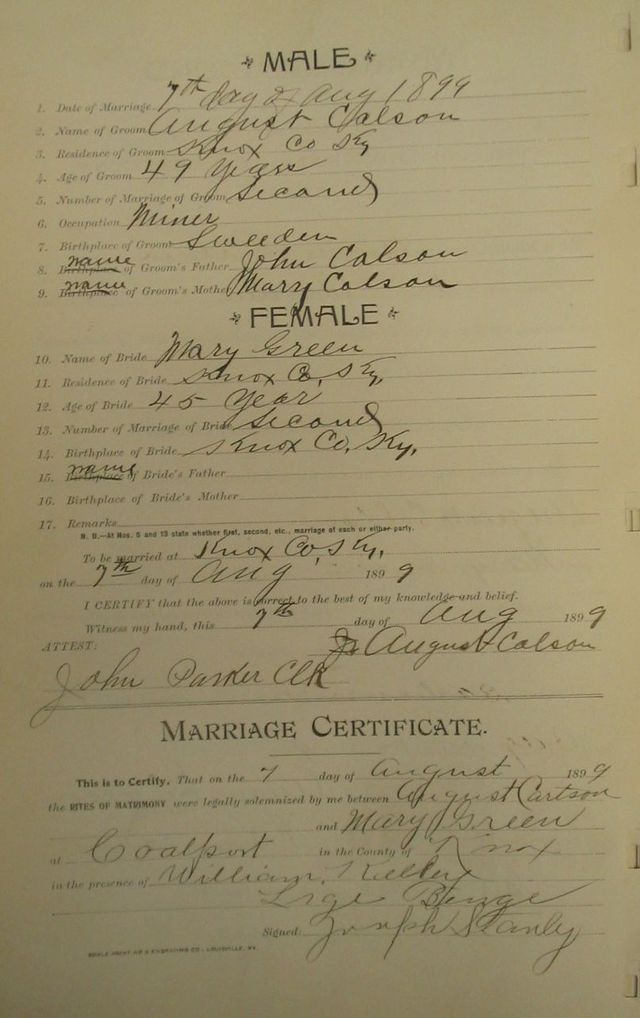 MALE
1. Date of Marriage 7th day of Aug 1899
2. Name of Groom August Calson
3. Residence of Groom Knox Co Ky
4. Age of Groom 49 Years
5. Number of Marriage of Groom Second
6. Occupation Miner
7. Birthplace of Groom Sweeden
8. Birthplace name of Groom's Father John Calson
9. Birthplace name of Groom's Mother Mary Calson
FEMALE
10. Name of Bride Mary Green
11. Residence of Bride Knox Co, Ky
12. Age of Bride 45 Year
13. Number of Marriage of Bride Second
14. Birthplace of Bride Knox Co, Ky,
15. Birthplace name of Bride's Father
16. Birthplace of Bride's Mother
17. Remarks
N. B.—At Nos. 5 and 13 state whether first, second, etc., marriage of each or either party.
To be married at Knox Co, Ky,
on the 7th day of Aug 1899
I CERTIFY that the above is correct to the best of my knowledge and belief.
Witness my hand, this 7th day of Aug 1899
ATTEST: August Calson
John Parker Clk
MARRIAGE CERTIFICATE.
This is to Certify, That on the 7 day of August 1899
the RITES OF MATRIMONY were legally solemnized by me between August Cartson
and Mary Green
at Coalport in the County of Knox
in the presence of William Kelley
Lige Benge
Signed Joseph Stanly
PRINTING & ENGRAVING CO., LOUISVILLE, KY.